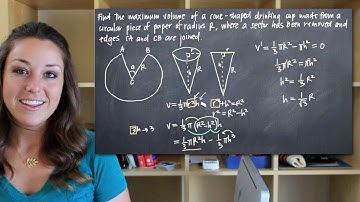 Find the maximum volume of a cone-shaped drinking cup made from a
circular piece of paper of radius R, where a sector has been removed and
edges CA and CB are joined.
A
B
R
C
V = ⅓πr²h
r² + h² = R²
r² = R² - h²
V = ⅓π(R² - h²)h
= ⅓πR²h - ⅓πh³
V' = ⅓πR² - πh² = 0
⅓πR² = πh²
h² = ⅓R²
h = 1/√3 R